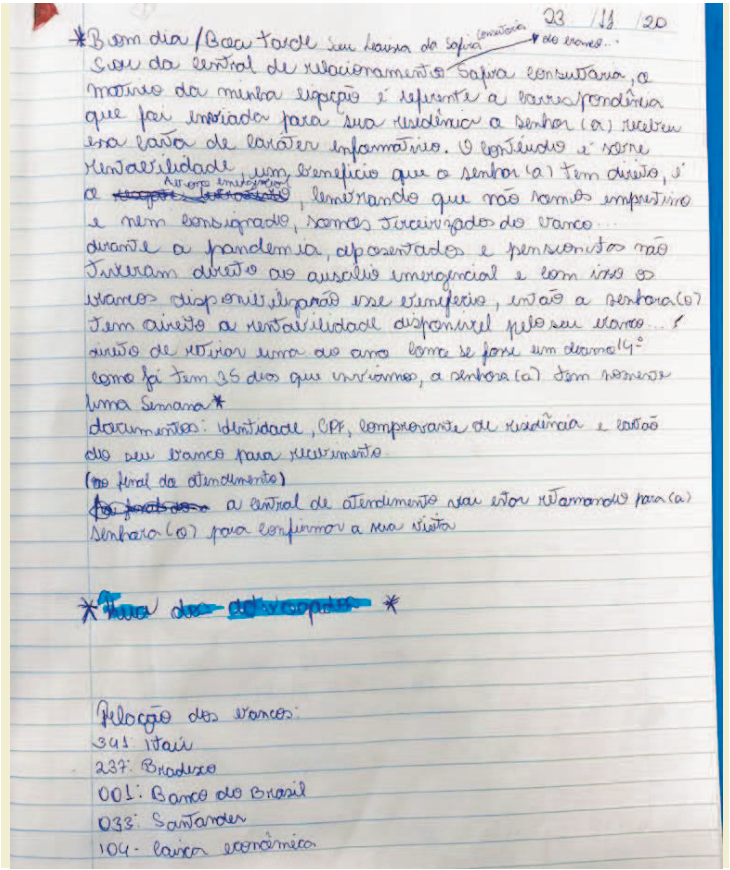 23/11/20
*Bom dia/Boa tarde sou Laissa da Safira consultoria do banco...
Sou da central de relacionamento Safira consultoria, o
motivo da minha ligação é referente a correspondência
que foi enviada para sua residência o senhor(a) recebeu
essa carta de caráter informativo. O contéudo é sobre
rentabilidade, um benefício que o senhor(a) tem direito, é
o abono emergencial, lembrando que não somos emprestimo
e nem consignado, somos terceirizados do banco...
durante a pandemia, aposentados e pensionistas não
tiveram direito ao auxilio emergencial e com isso os
bancos disponibilizarão esse beneficio, então a senhora(o)
tem direito a rentabilidade disponivel pelo seu banco...
direito de retirar uma ao ano como se fosse um abono 14º
como já tem 35 dias que enviamos, a senhora(a) tem somente
uma semana*
documentos: identidade, CPF, comprovante de residência e cartão
do seu banco para recebimento.
(no final do atendimento)
a central de atendimento vai estar retornando para(a)
senhora(o) para confirmar a sua visita
*Rua dos advogados*
Relação dos bancos:
341: Itaú
237: Bradesco
001: Banco do Brasil
033: Santander
104- Caixa econômica